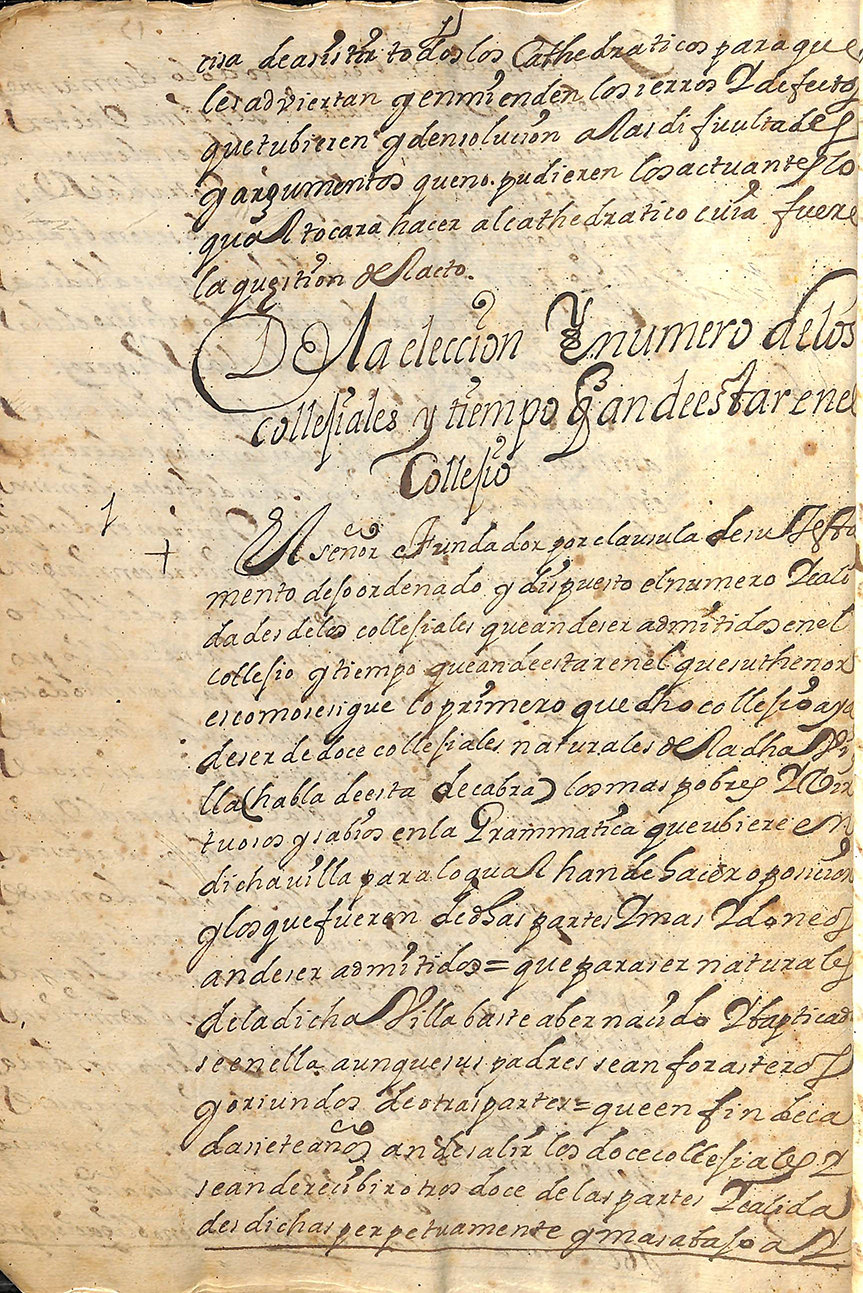 cisa de asistir todos los Cathedraticos para que
les adviertan y enmienden los ierros y defectos
que tubieren y den solucion a las dificultades
y argumentos que no pudieren los actuantes lo
qual tocara hacer al cathedratico cuia fuere
la question del acto.
De la eleccion y numero de los
collesiales y tiempo q an de estar en el
Collesio
1
El señor Fundador por clausula de su Testa
mento deso ordenado y dispuesto el numero y cali
dades de los collesiales que an de ser admitidos en el
collesio y tiempo que an de estar en el que su thenor
es como se sigue lo primero que dho collesio aya
de ser de doce collesiales naturales de la dha Vi
lla (habla de esta de cabra) los mas pobres y Vir
tuosos y sabios en la Grammatica que ubiere en
dicha villa para lo qual han de hacer oposicion
y los que fueren de dhas partes y mas ydoneos
an de ser admitidos = que para ser naturales
de la dicha Villa baste aber nacido y bapticado
se en ella aunque sus padres sean forasteros
y oriundos de otras partes = que en fin de ca
da siete años an de salir los doce collesiales y
se an de recibir otros doce de las partes y calida
des dichas perpetuamente y mas abaso a y